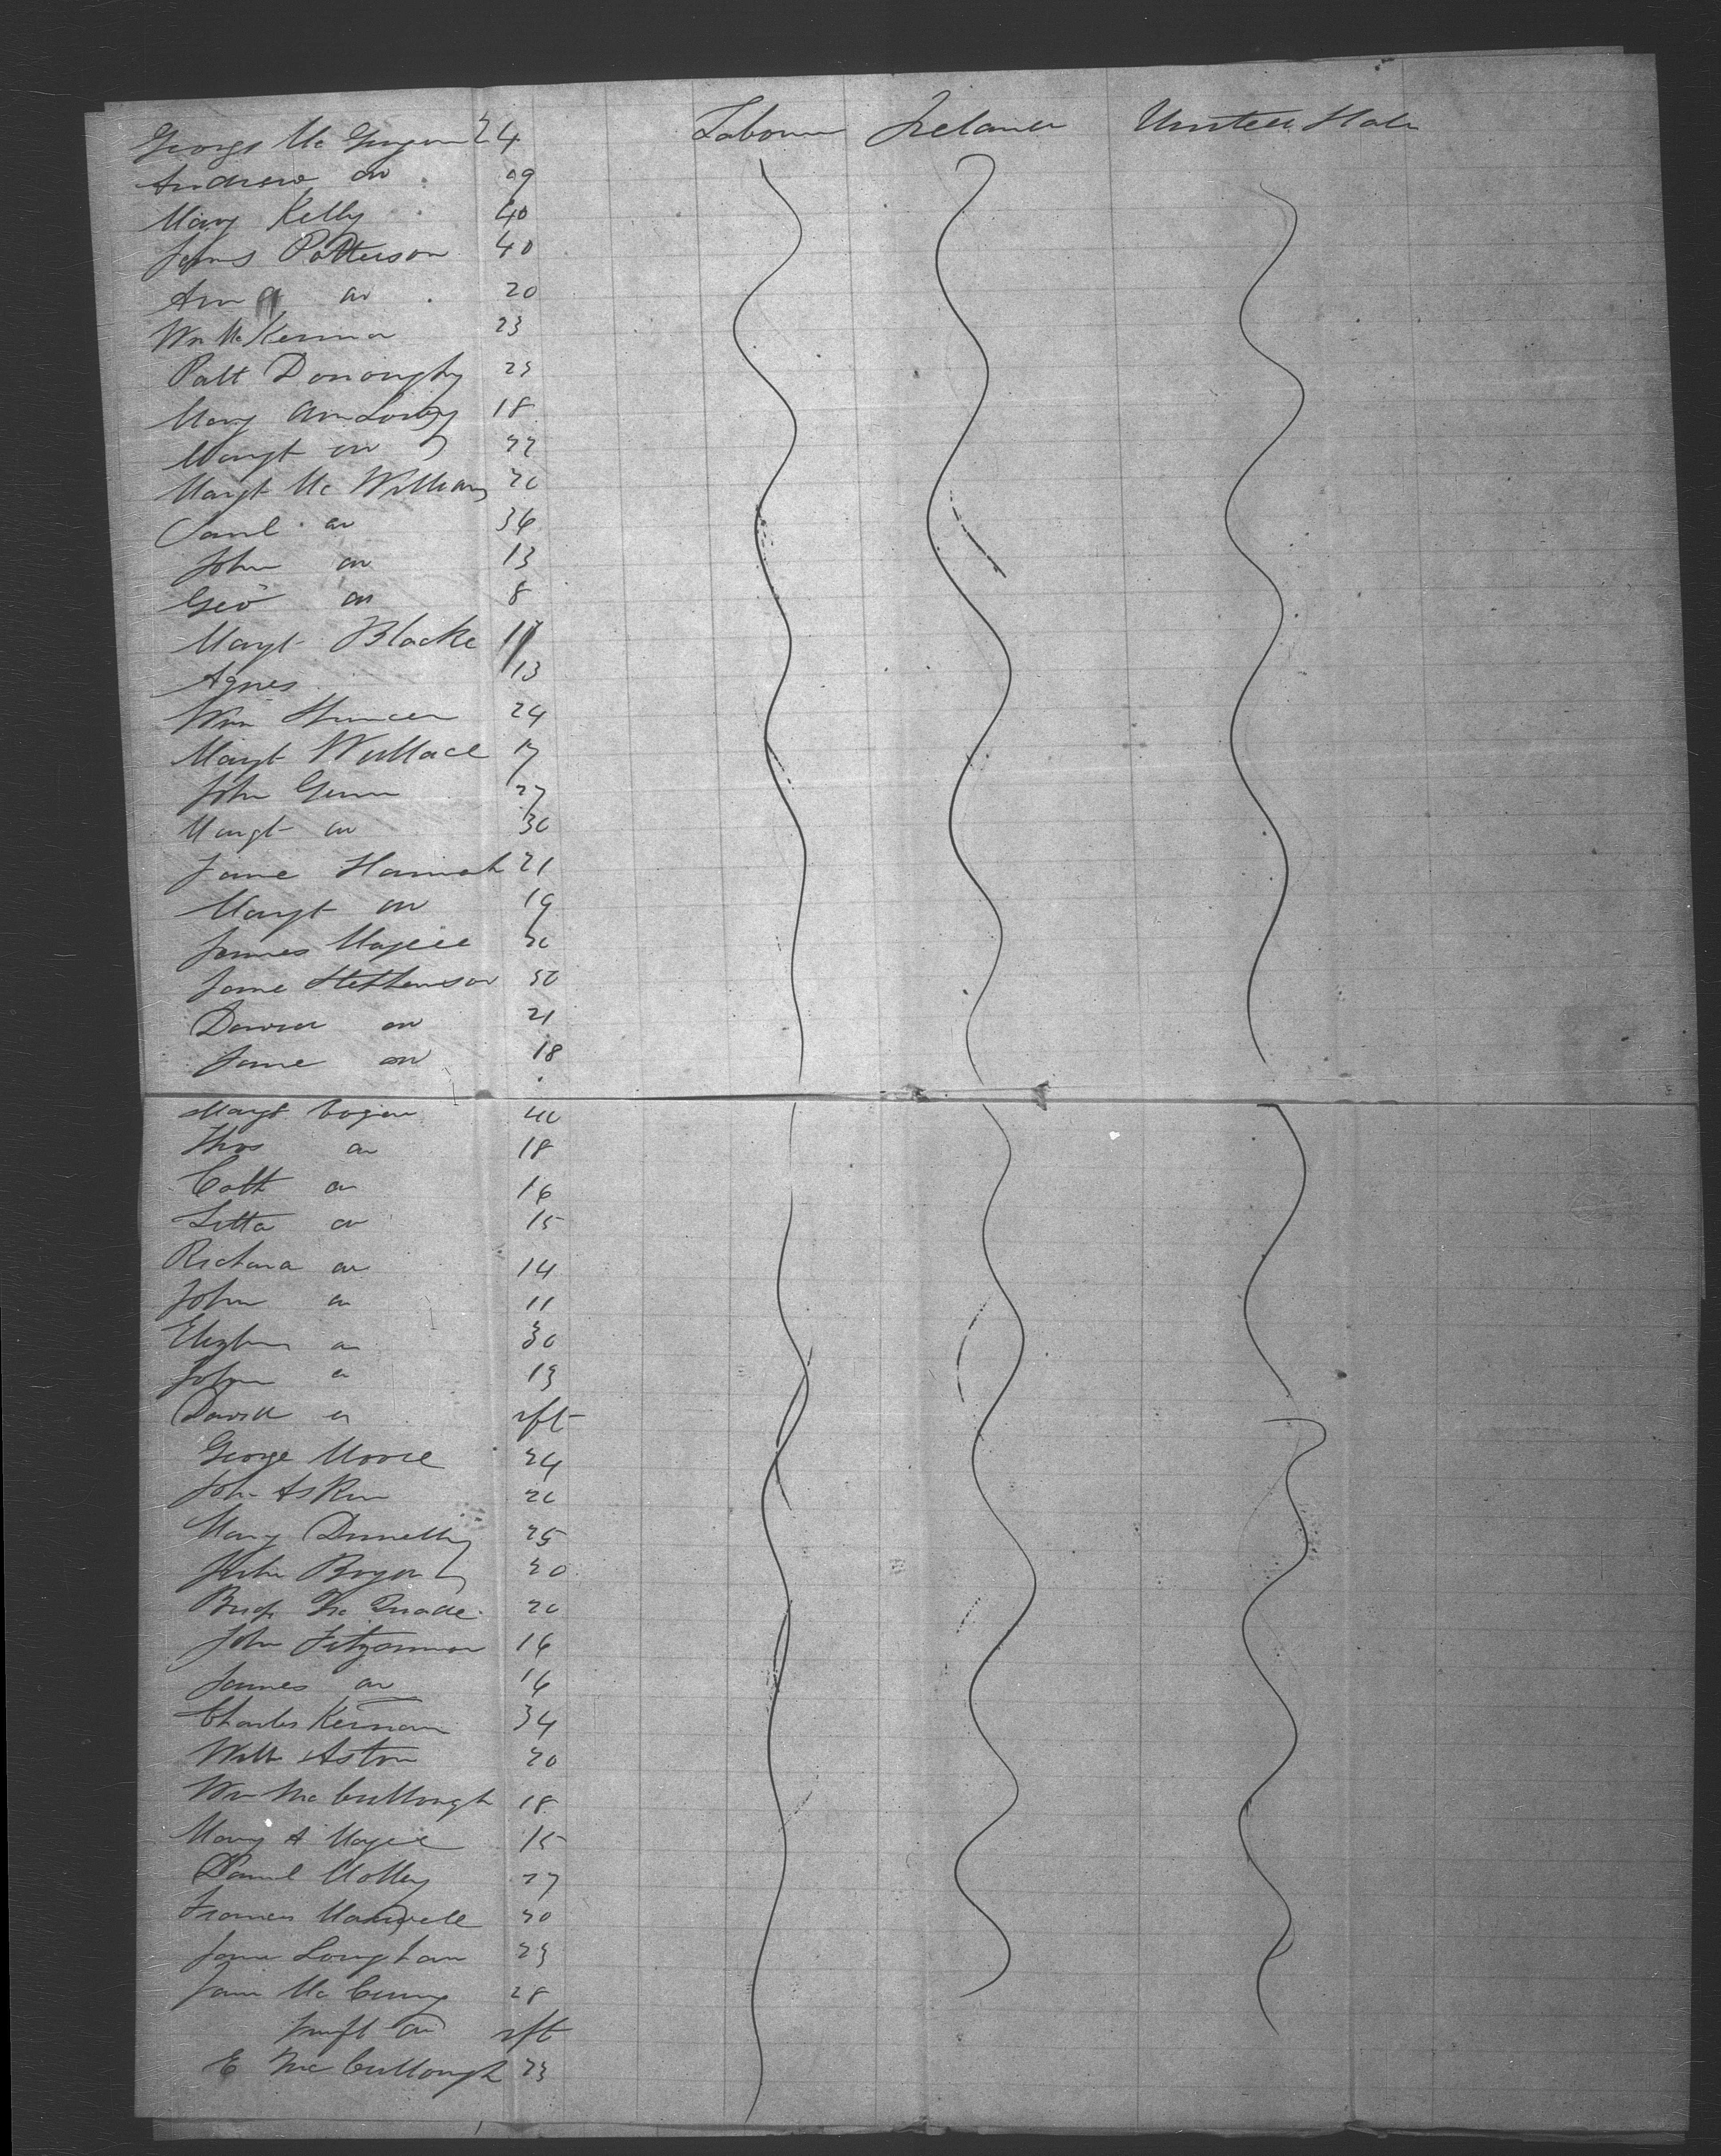 George Mc 24 Labourer Ireland United States
Andrew do 09
Mary Kelly 40
James Patterson 40
Ann do 20
Wm McKenna 23
Patt Donoughy 25
Mary Ann 18
Margt do 22
Margt Mc Williams 20
Saml do 36
John do 13
Geo do 8
Margt Blacke 11
Agnes 13
Wm 24
Margt Wallace 17
John 27
Margt do 30
Jane Hannah 21
Margt do 19
James Magee 30
Jane Stephenson 50
David do 21
Jane do 18
Margt 40
Thos do 18
Cath do 16
Litta do 15
Richard do 14
John do 11
do 30
John do 13
David do ift
George Moore 24
John Askin 20
Mary Dunelly 25
John 20
Mc Quade 20
John 16
James do 16
Charles Kernan 34
Willm Aston 20
Wm McCullough 18
Mary A Magee 15
Daniel Molloy 27
Frances Maxwell 30
Loughan 23
Jane Mc 28
Inft do ift
E McCullough 23